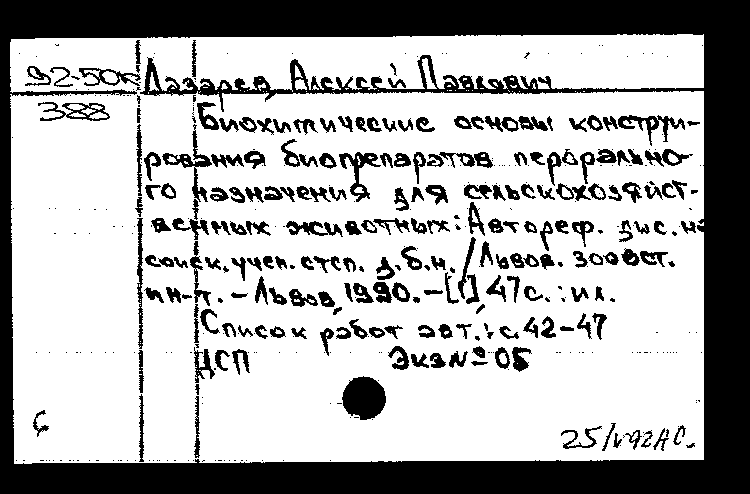 92-50к Лазарев, Алексей Павлович
388
Биохимические основы конструи-
рования биопрепаратов перорально-
го назначения для сельскохозяйст-
венных животных: Автореф. дис. на
соиск. учен. степ. д.б.н. / Львов. зоовет.
ин-т. - Львов, 1990. - [1] 47 с. : ил.
Список работ авт.: с. 42-47
ДСП Экз № 05
6
25/V-92